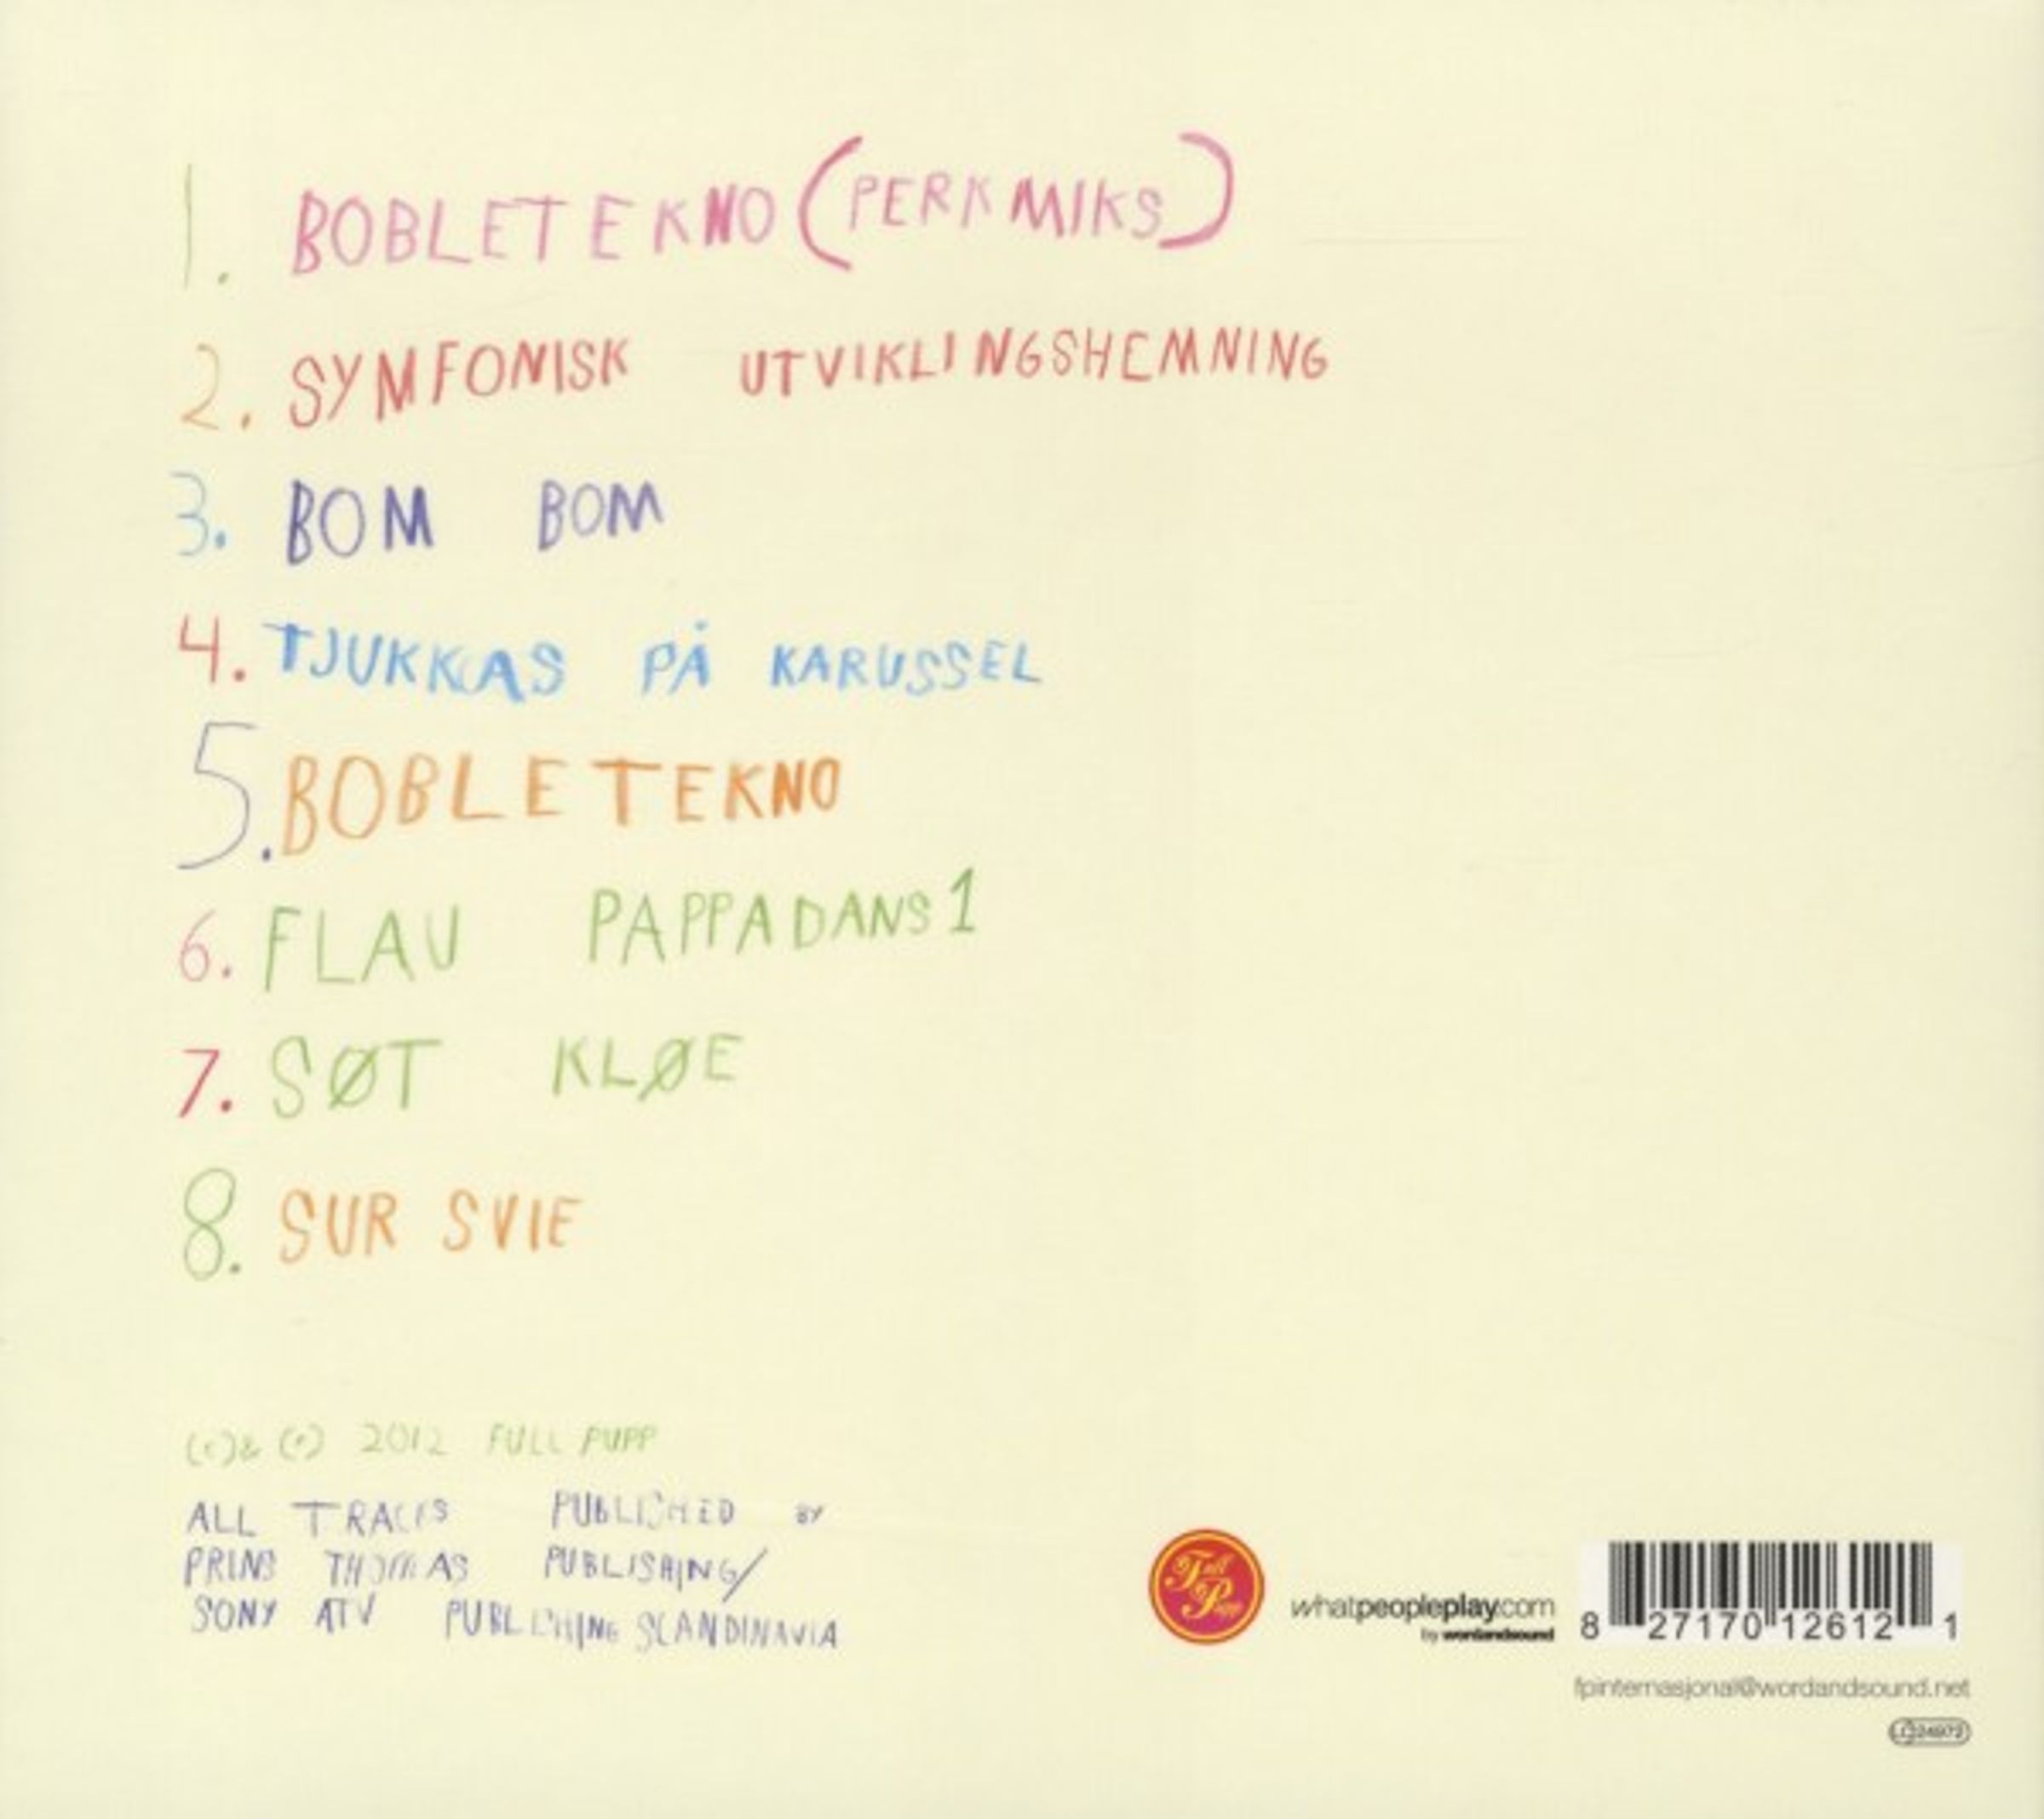 1. BOBLETEKNO (PERKMIKS)
2. SYMFONISK UTVIKLINGSHEMNING
3. BOM BOM
4. TJUKKAS PÅ KARUSSEL
5. BOBLETEKNO
6. FLAU PAPPADANS 1
7. SØT KLØE
8. SUR SVIE
(C) & (P) 2012 FULL PUPP
ALL TRACKS PUBLISHED BY
PRINS THOMAS PUBLISHING/
SONY ATV PUBLISHING SCANDINAVIA
Full Pupp
whatpeopleplay.com
by wordandsound
8 27170 12612 1
fpinternasjonal@wordandsound.net